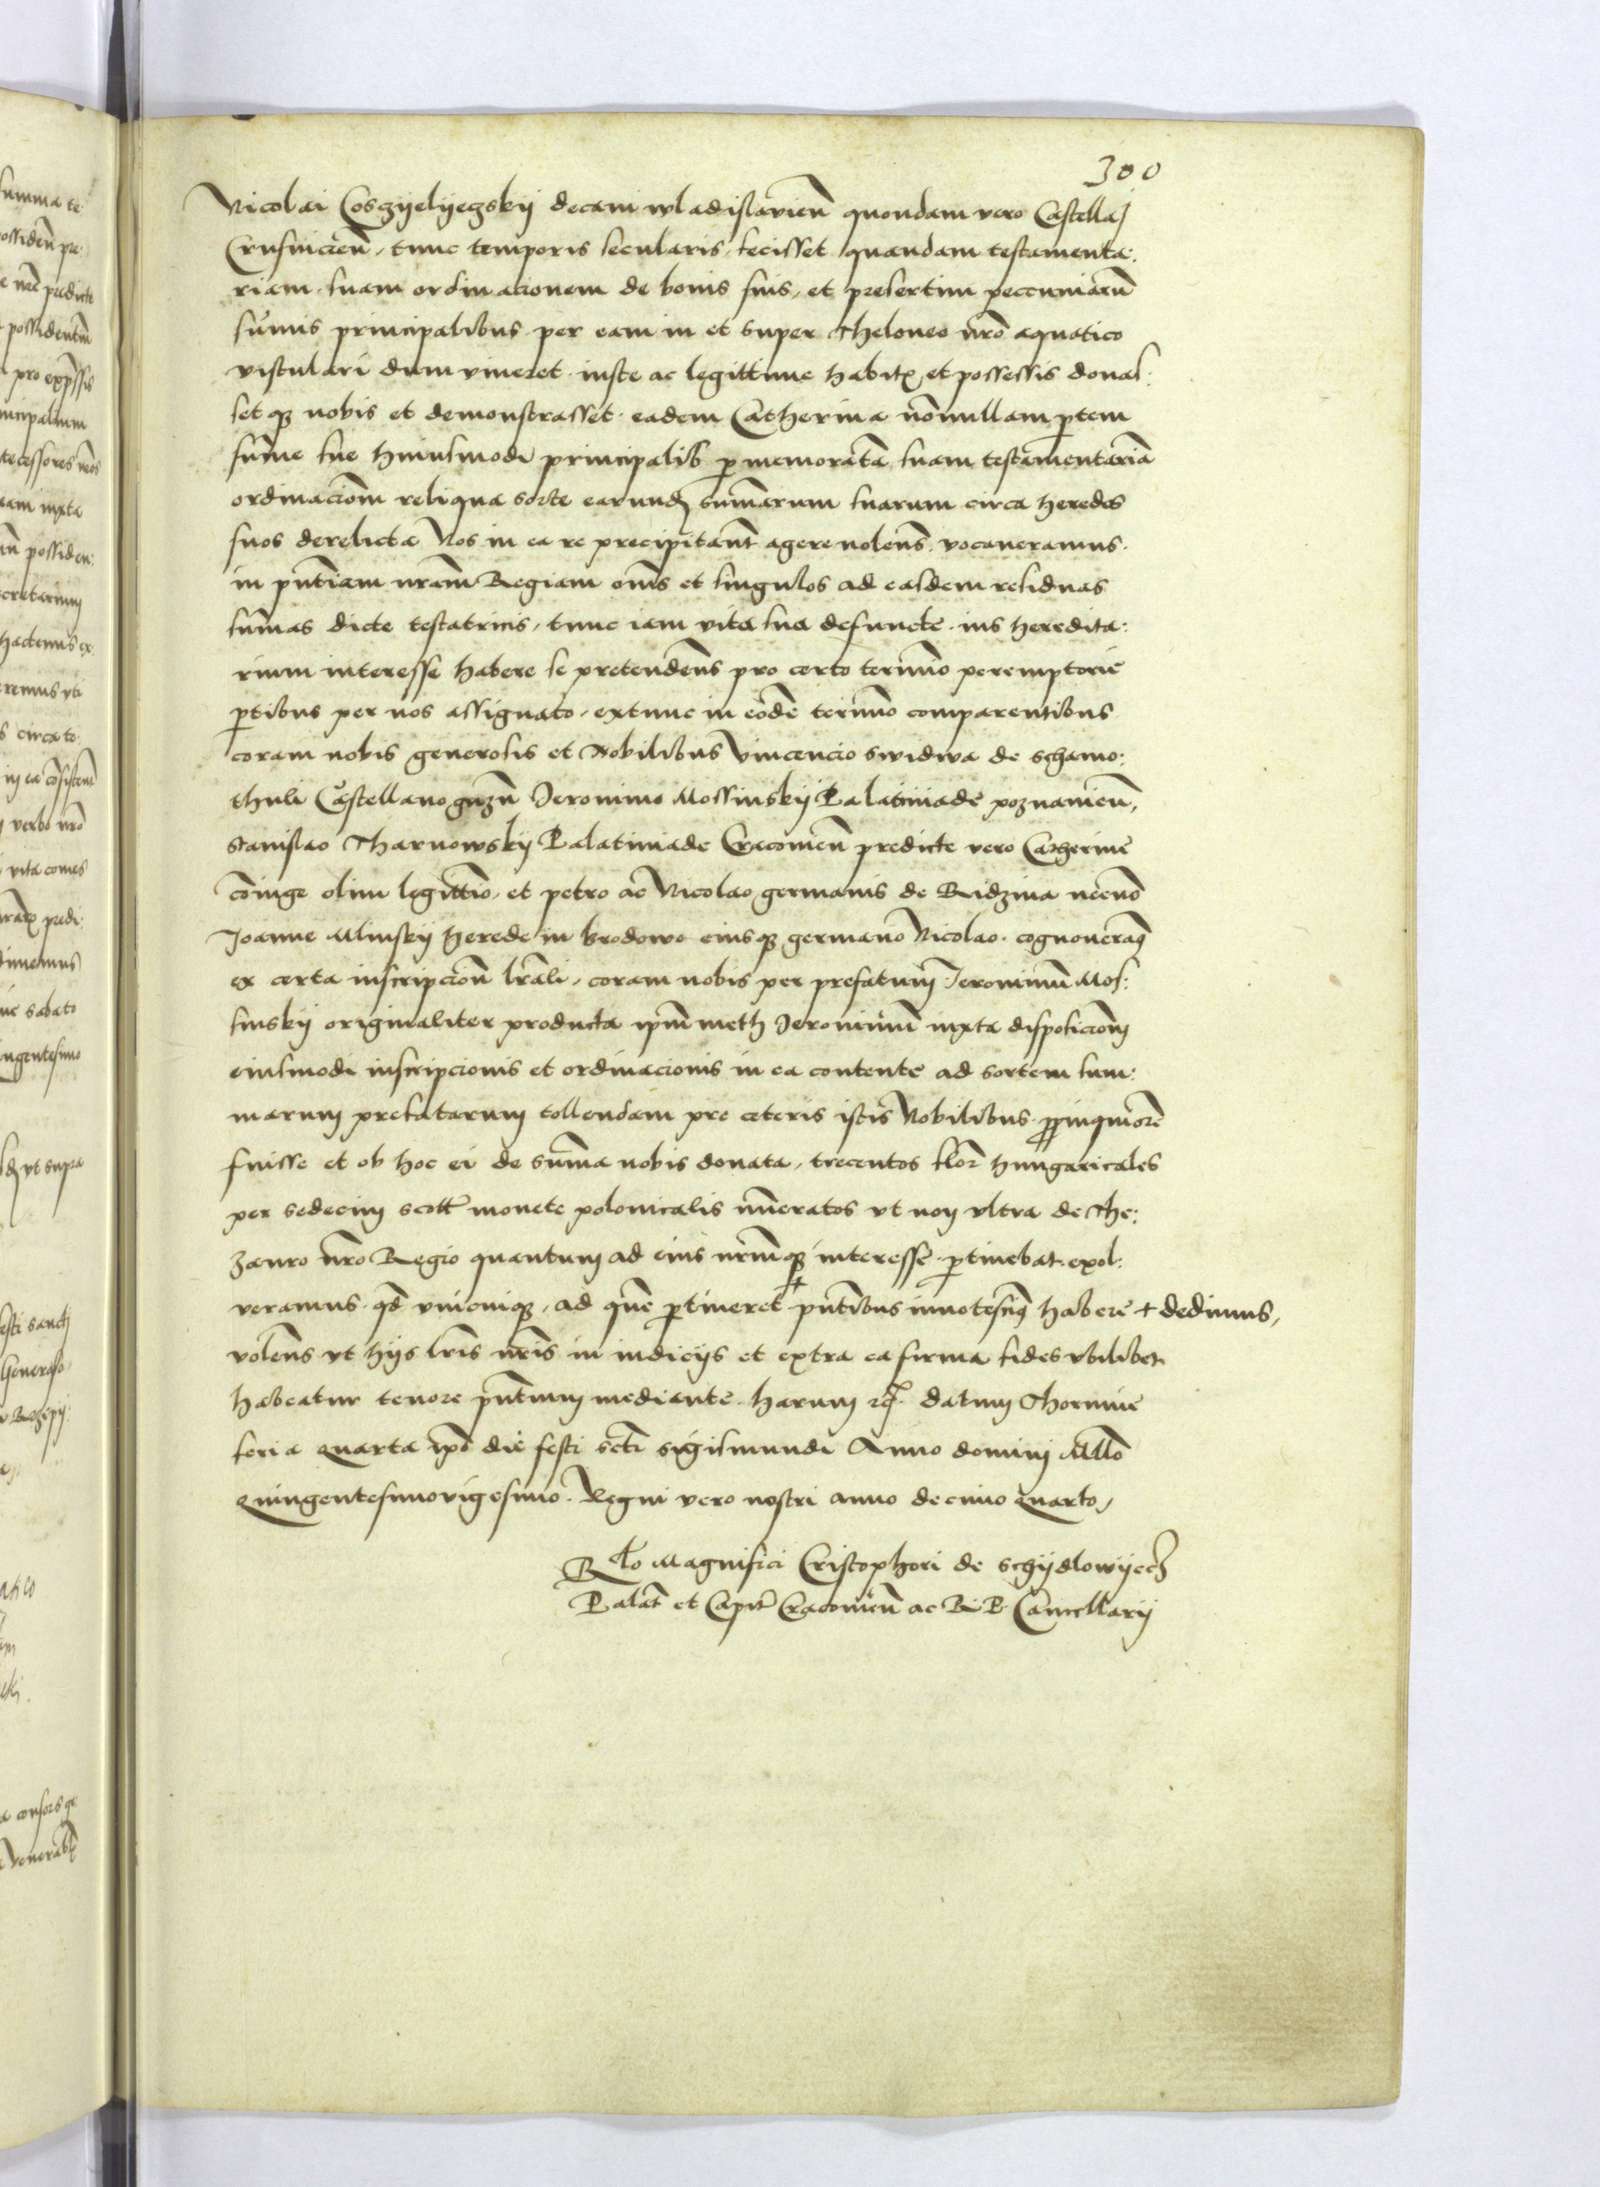 300
Nicolai Cosczyelyeczskij decani wladislavien̄ quondam vero Castellaȷ̄
Crusvicien̄, tunc temporis secularis, fecisset quandam testamenta:
riam suam ordinacionem de bonis suis, et presertim peccuniarū
sum̄is principalibus per eam in et super Theloneo nr̄o aquatico
vistulari dum viveret iuste ac legittime habitꝭ, et possessis donas:
setqꝫ nobis et demonstrasset. eadem Catherina nōnullam ꝑtem
sum̄e sue huiusmodi principalis ꝑ memoratā suam testamentariā
ordinaciōm reliqua sorte earundꝫ sum̄arum suarum circa heredes
suos derelicta Nos in ea re precipitant̄ agere nolen̄s. vocaveramus.
in pn̄tiam nr̄am Regiam om̄s et singulos ad easdem residuas
sum̄as dicte testatricis, tunc iam vita sua defuncte. ius heredita:
rium interesse habere se pretenden̄s pro certo termīo peremptorie
ꝑtibus per nos assignato, extunc in eodē termīo comparentibus
coram nobis generosis et Nobilibus Vincencio swidwa de schamo:
thuli Castellano gnzn̄ Jeronimo Mossinskij Palatiniade poznanien̄,
Stanislao Tharnowskij Palatiniade Cracovien̄ predicte vero Catherine
cōiuge olim legittīo, et petro ac Nicolao germanis de Ridzina necnō
Joanne Mlinskij herede in brodowo eiusqꝫ germano Nicolao. cognoveraꝗ
ex certa inscripciōn lr̄ali, coram nobis per prefatum Jeronimū Mos:
sinskij originaliter producta ip̄m meth Jeronimum iuxta disposiciōm
eiusmodi inscripcionis et ordinacionis in ea contente ad sortem sum:
marum prefatarum tollendam pre ceteris istis Nobilibus ꝓpinquiorē
fuisse et ob hoc ei de sum̄a nobis donata, trecentos flor̄ hungaricales
per sedecim scott̄ monete polonicalis nu̅eratos ut non ultra de The:
zauro nr̄o Regio quantum ad eius nr̄mqꝫ interesse ꝑtinebat. exol:
veramus. qđ unicuiqꝫ, ad quē ꝑtineret + pn̄tibus innotesciꝗ habere + dedimus,
volen̄s ut hijs lr̄is nr̄is in iudicijs et extra ea firma fides ubilibet
habeatur tenore pn̄tium mediante. harum rc̄. datum Thorunie
feria quarta ip̄o die festi scti sigismundi Anno domini Millō
Quingentesimovigesimo. Regni vero nostri anno decimo quarto,
Rłto Magnifici Cristophori de schijdlowijecz
Palat̄ et Capit̄ Cracovien̄ ac R P Cancellarij